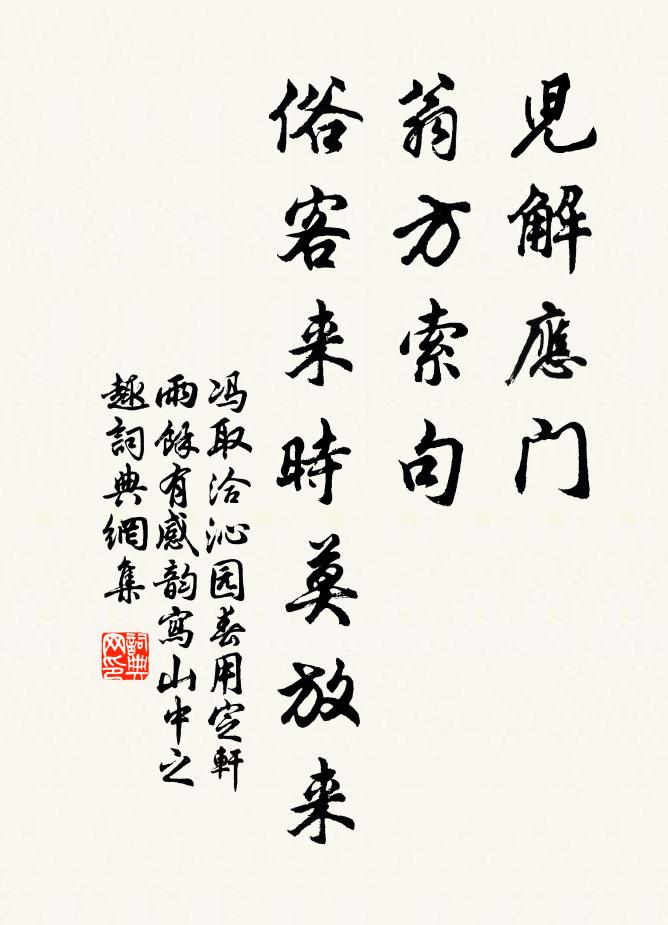 兒解應门
翁方索句
俗客来時莫放来
冯取洽沁园春用定軒
雨餘有感韵寫山中之
趣詞典網集
詞典
网印